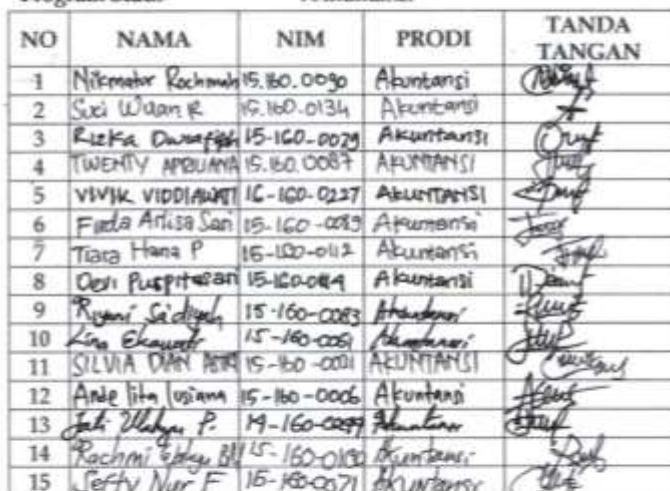 NO NAMA NIM PRODI TANDA TANGAN
1 Nikmatur Rochmah 15.160.0090 Akuntansi
2 Suci Wulan R 15.160.0134 Akuntansi
3 Rizka 15-160-0029 Akuntansi
4 TWENTY APRILIANA 15.160.0087 AKUNTANSI
5 VIVIK VIDDIAWATI 16-160-0227 AKUNTANSI
6 Farda Arlisa Sari 15-160-0089 Akuntansi
7 Tiara Hana P 15-160-0112 Akuntansi
8 Devi Puspitasari 15-160-0114 Akuntansi
9 Riyani Sa'diyah 15-160-0083 Akuntansi
10 Lina Ekawati 15-160-0051 Akuntansi
11 SILVIA DIAN 15-160-0021 AKUNTANSI
12 Ande lita lusiana 15-160-0006 Akuntansi
13 Jati Wahyu P. 14-160-0299 Akuntansi
14 Rachmi 15-160-0180 Akuntansi
15 Sefty Nur F 15-160-0071 Akuntansi